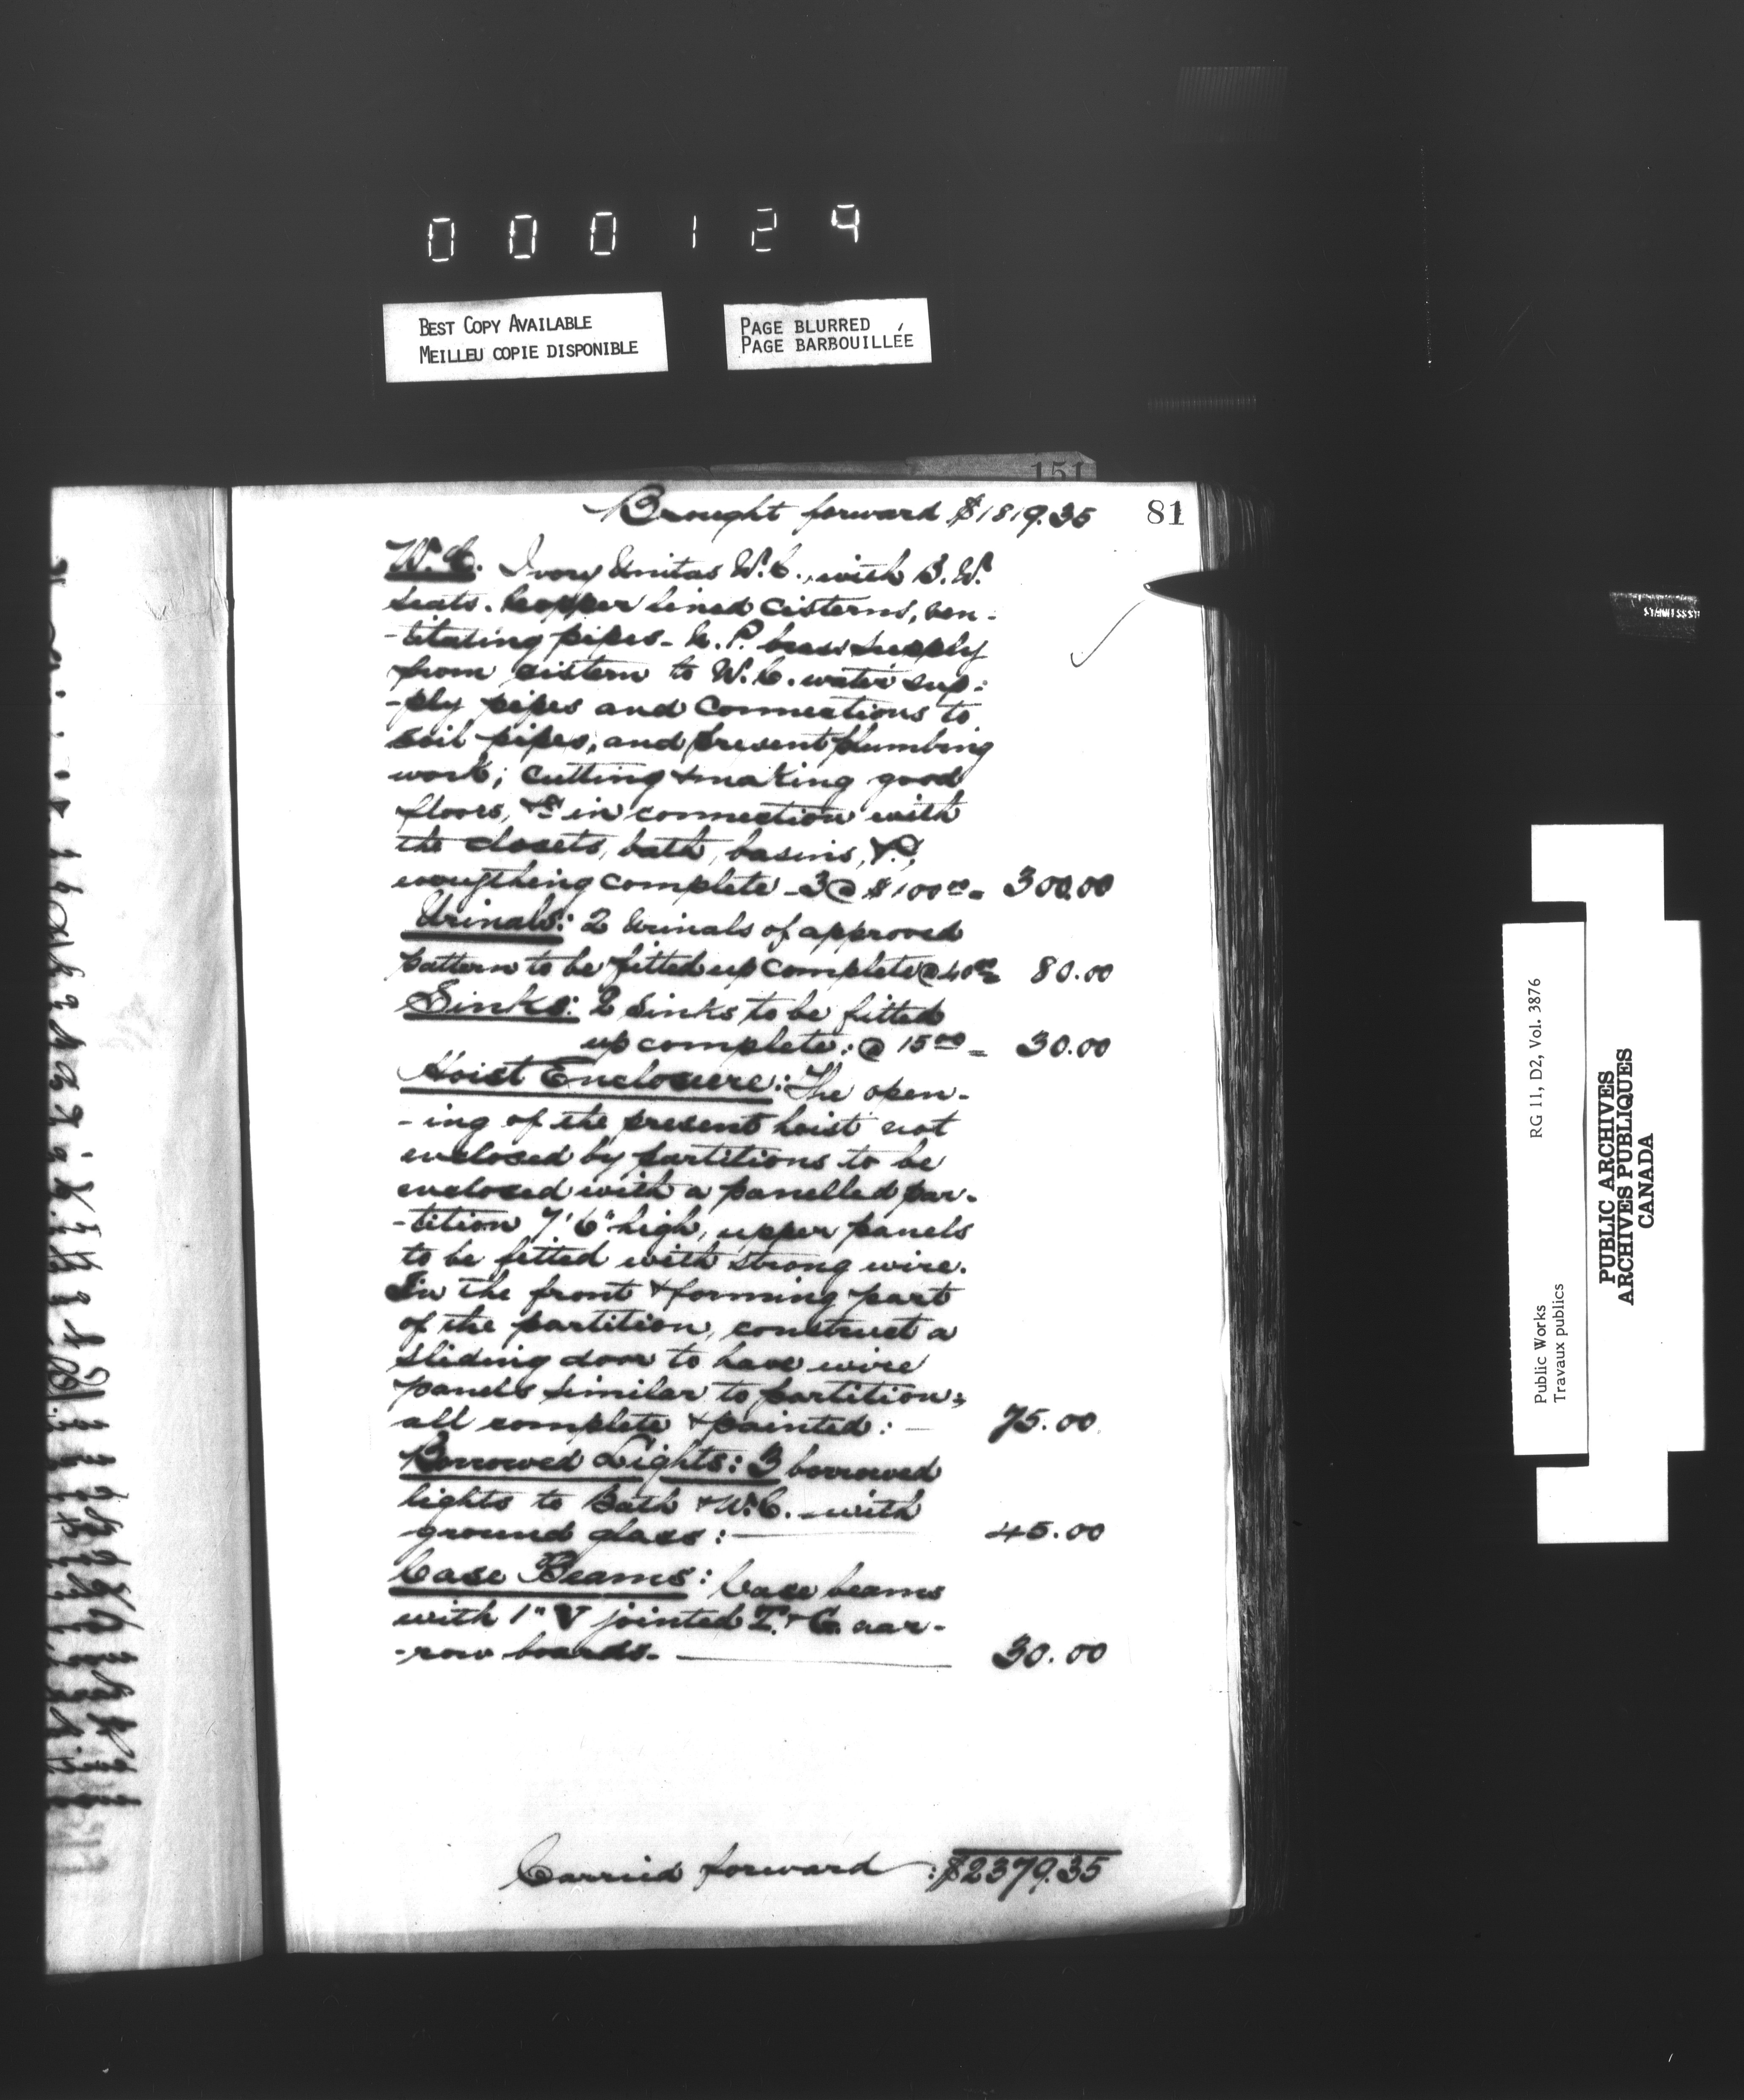 000129
BEST COPY AVAILABLE
MEILLEU COPIE DISPONIBLE
PAGE BLURRED
PAGE BARBOUILLÉE
151
81
Brought forward $1819.35
W.C. Ivory Unitas W.C., with B.W.
seats. Copper lined cisterns, ven-
-tilating pipes - N.P. brass supply
from cistern to W.C. water sup-
-ply pipes and connections to
soil pipes, and present plumbing
work; cutting & making good
floors, &c in connection with
the closets, bath, basins, &c,
everything complete - 3 @ $100.00 = 300.00
Urinals: 2 Urinals of approved
pattern to be fitted up complete @ 40.00 = 80.00
Sinks: 2 Sinks to be fitted
up complete: @ 15.00 = 30.00
Hoist Enclosure: The open-
-ing of the present hoist not
enclosed by partitions to be
enclosed with a panelled par-
-tition 7'6" high, upper panels
to be fitted with strong wire.
In the front & forming part
of the partition, construct a
sliding door to have wire
panels similar to partition;
all complete & painted: — 75.00
Borrowed Lights: 3 borrowed
lights to Bath & W.C. with
ground glass: — 45.00
Case Beams: Case beams
with 1" V jointed T. & G. nar-
-row boards. — 30.00
Carried forward: $2379.35
Public Works RG 11, D2, Vol. 3876
Travaux publics
PUBLIC ARCHIVES
ARCHIVES PUBLIQUES
CANADA